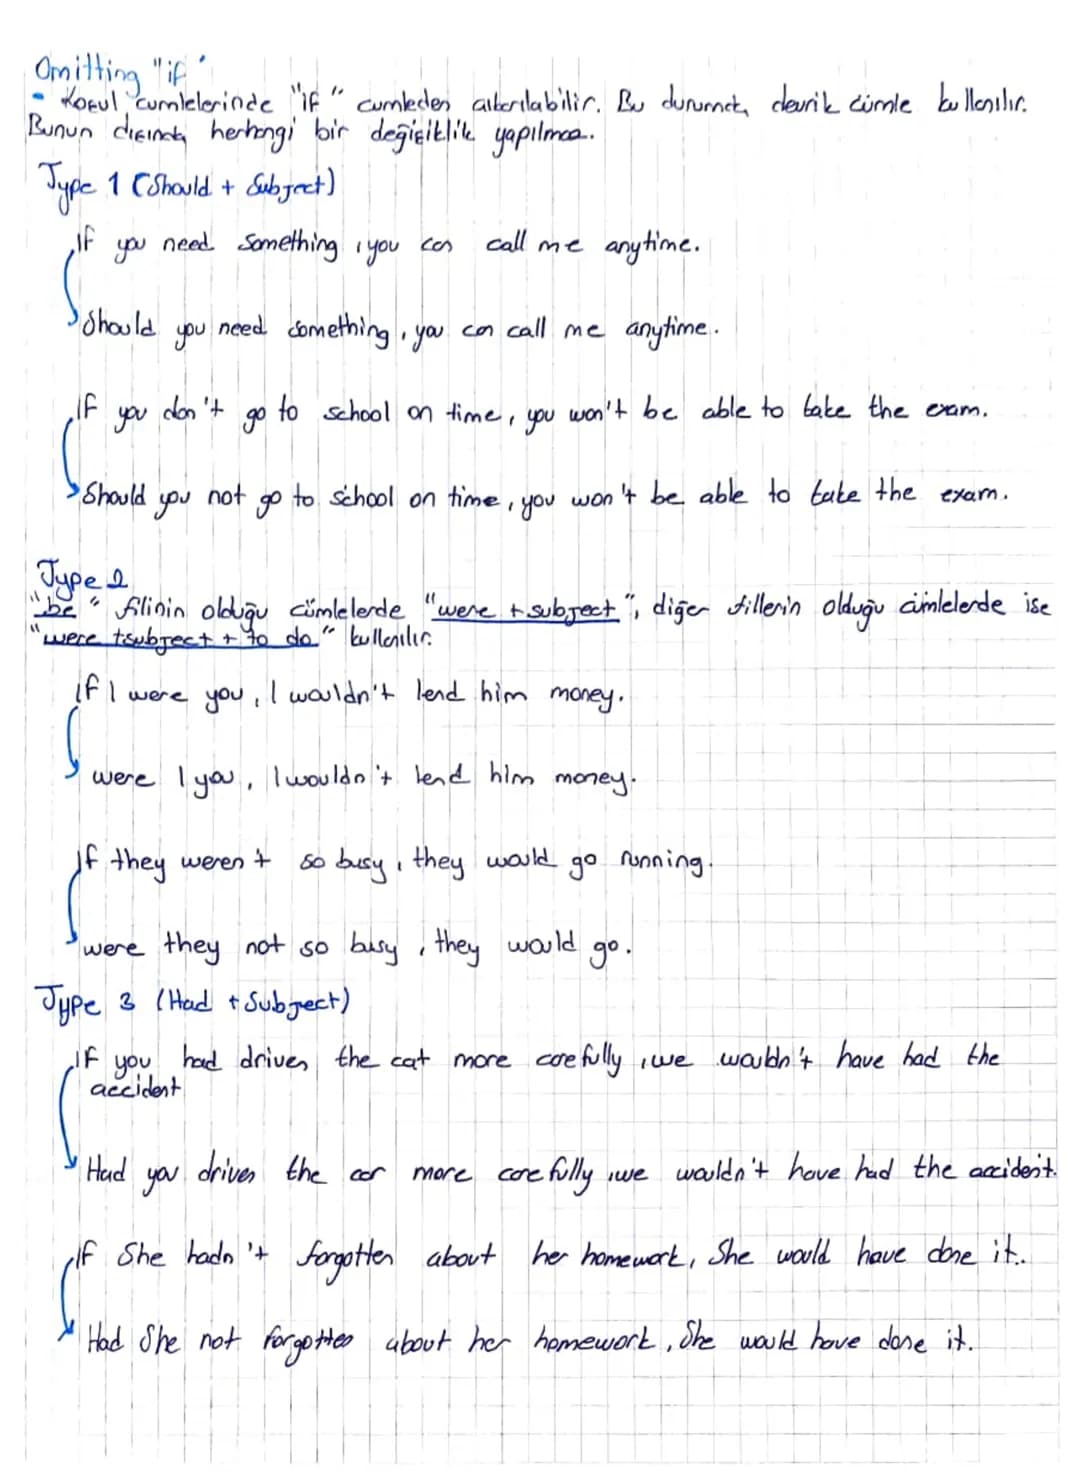 Omitting "if"
- Koşul cümlelerinde "if" cümleden çıkarılabilir. Bu durumda, devrik cümle kullanılır.
Bunun dışında herhangi bir değişiklik yapılmaz.
Type 1 (Should + Subject)
If you need something, you can call me anytime.
Should you need something, you can call me anytime.
If you don't go to school on time, you won't be able to take the exam.
Should you not go to school on time, you won't be able to take the exam.
Type 2
"be" fiilinin olduğu cümlelerde "were + subject", diğer fiillerin olduğu cümlelerde ise
"were + subject + to do" kullanılır.
If I were you, I wouldn't lend him money.
were I you, I wouldn't lend him money.
If they weren't so busy, they would go running.
were they not so busy, they would go.
Type 3 (Had + Subject)
If you had driven the cat more carefully, we wouldn't have had the
accident
Had you driven the car more carefully, we wouldn't have had the accident.
If She hadn't forgotten about her homework, She would have done it..
Had She not forgotten about her homework, She would have done it.